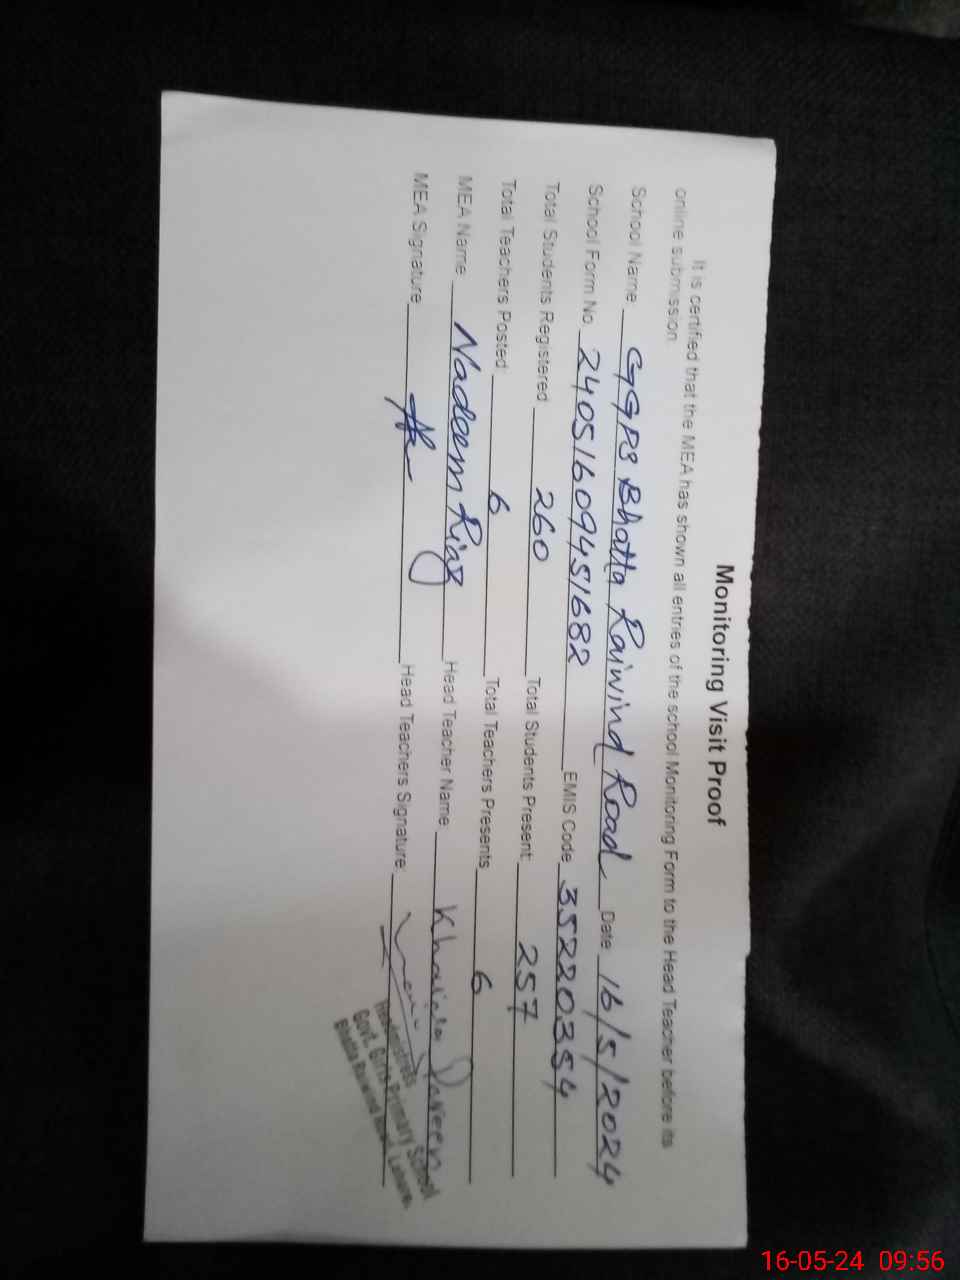 Monitoring Visit Proof
It is certified that the MEA has shown all entries of the school Monitoring Form to the Head Teacher before its
online submission
School Name GGPS Bhatta Raiwind Road Date 16/5/2024
School Form No. 240516094516 82 EMIS Code 35220354
Total Students Registered 260 Total Students Present: 257
Total Teachers Posted: 6 Total Teachers Presents 6
MEA Name Nadeem Riaz Head Teacher Name
MEA Signature Head Teachers Signature:
Headmistress
Govt. Girls Primary School
Bhatta Raiwind Road, Lahore.
16-05-24 09:56